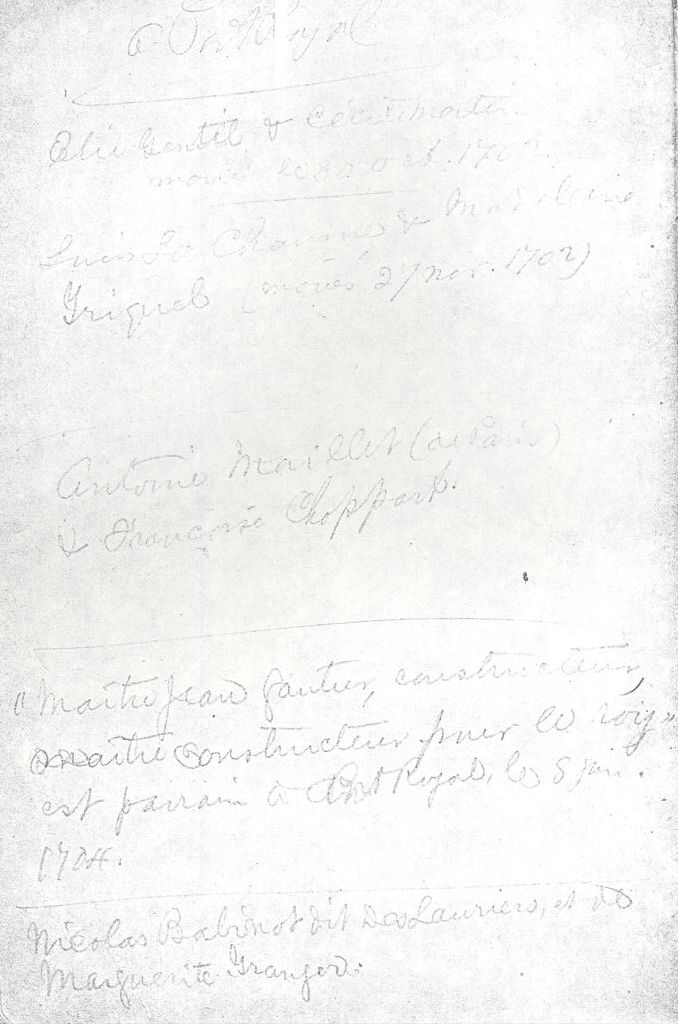 à Port Royal
Elie Gentil & Cécile Martin
mariés le 20 oct. 1702
Louis La Chaume & Madeleine
Triquel (mariés 27 nov. 1702)
Antoine Maillet (de Paris)
& Françoise Choppart.
"Maître Jean Gautier, constructeur,
maitre constructeur pour le roiy"
est parrain à Port Royal, le 8 juin.
1704.
Nicolas Babinot dit Des Lauriers, et de
Marguerite Granger.